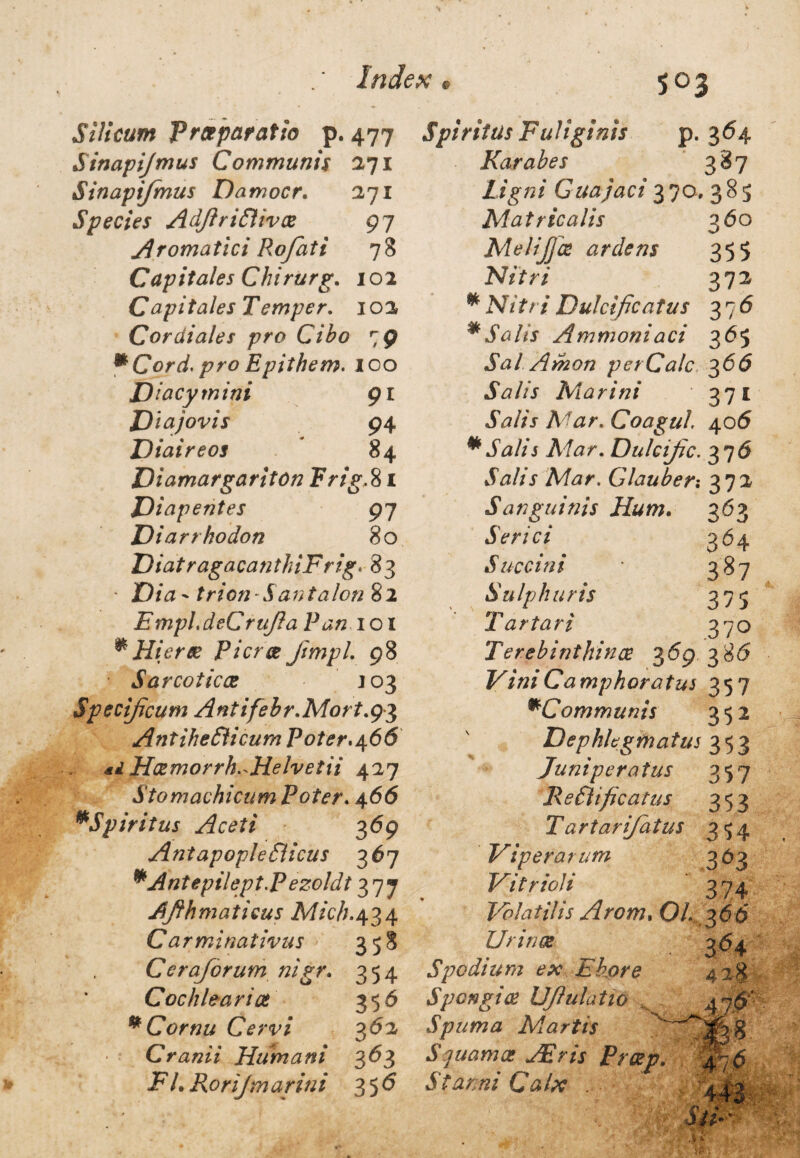 Index. 503
Silicum Præparatio p. 477
Sinapiſmus Communis 271
Sinapiſmus Damocr. 271
Species Adſtrictivæ 97
Aromatici Roſati 78
Capitales Chirurg. 102
Capitales Temper. 102
Cordiales pro Cibo 79
*Cord. pro Epithem. 100
Diacymini 91
Diajovis 94
Diaireos 84
Diamargariton Frig. 81
Diapentes 97
Diarrhodon 80
DiatragacanthiFrig. 83
Dia-trion-Santalon 82
Empl.deCruſta Pan 101
*Hieræ Picræ ſimpl. 98
Sarcoticæ 103
Specificum Antifebr.Mort.93
Antihecticum Poter.466
ad Hæmorrh.Helvetii 427
Stomachicum Poter. 466
*Spiritus Aceti 369
Antapoplecticus 367
*Antepilept.Pezoldt 377
Aſthmaticus Mich.434
Carminativus 358
Ceraſorum nigr. 354
Cochleariæ 356
*Cornu Cervi 362
Cranii Humani 363
Fl. Roriſmarini 356
Spiritus Fuliginis p. 364
Karabes 387
Ligni Guajaci 370. 385
Matricalis 360
Meliſſæ ardens 355
Nitri 372
*Nitri Dulcificatus 376
*Salis Ammoniaci 365
Sal Amon per Calc 366
Salis Marini 371
Salis Mar. Coagul. 406
*Salis Mar. Dulcific. 376
Salis Mar. Glauber: 372
Sanguinis Hum. 363
Serici 364
Succini 387
Sulphuris 375
Tartari 370
Terebinthinæ 369 386
Vini Camphoratus 357
*Communis 352
Dephlegmatus 353
Juniperatus 357
Rectificatus 353
Tartariſatus 354
Viperarum 363
Vitrioli 374
Volatilis Arom. Ol. 366
Urinæ 364
Spodium ex Ebore 428
Spongiæ Uſtulatio 476
Spuma Martis
Squamæ Æris Præp. 476
Stanni Calx 443
Sti-